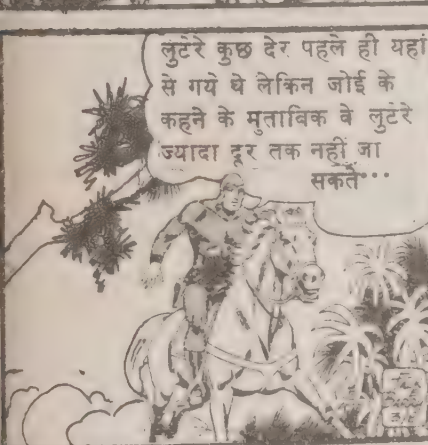 लुटेरे कुछ देर पहले ही यहां
से गये थे लेकिन जोई के
कहने के मुताबिक वे लुटेरे
ज्यादा दूर तक नहीं जा
सकते···